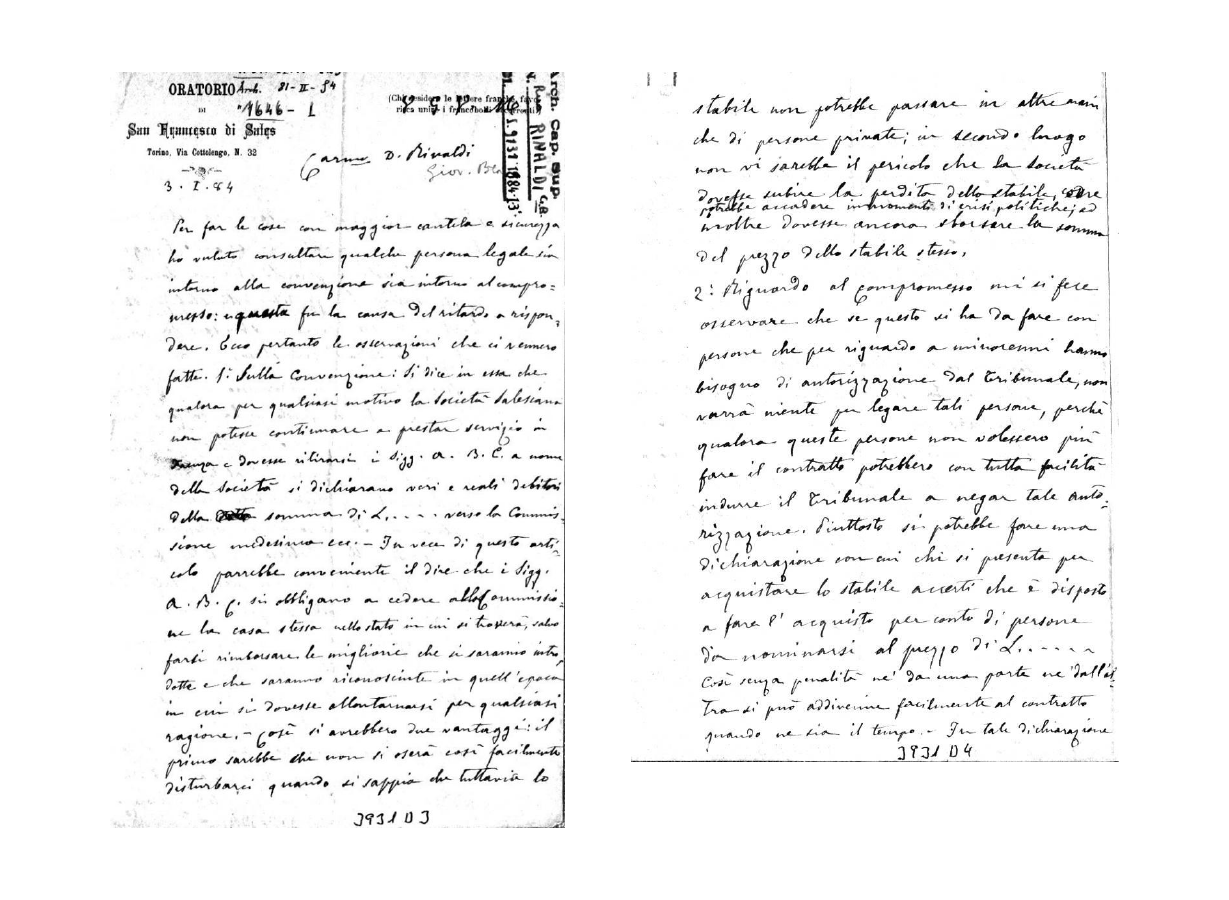 ORATORIO
DI
San Francesco di Sales
Torino, Via Cottolengo, N. 32
Arch. 21-II-54
1646-1
3. I. 84
(Chi desidera le lettere franche, favo
risca unire i francobolli
Arch. Cap. Sup.
N.
RINALDI G.B.
S. 9131 1884-13
Carmo D. Rinaldi
Giov.
Per far le cose con maggior cautela e sicurezza
ho voluto consultare qualche persona legale sia
intorno alla convenzione sia intorno al compro=
messo: e questa fu la causa del ritardo a rispon=
dere. Ecco pertanto le osservazioni che ci vennero
fatte. 1: Sulla Convenzione: Si dice in essa che
qualora per qualsiasi motivo la Società Salesiana
non potesse continuare a prestar servizio in
Faenza e dovesse ritirarsi i Sigg. A. B. C. a nome
della Società si dichiarano veri e reali debitori
della somma di L.... verso la Commis=
sione medesima ecc. - In vece di questo arti=
colo parrebbe conveniente il dire che i Sigg.
A. B. C. si obbligano a cedere alla Commissio=
ne la casa stessa nello stato in cui si troverà, salvo
farsi rimborsare le migliorie che si saranno intro
dotte e che saranno riconosciute in quell'epoca
in cui si dovesse allontanarsi per qualsiasi
ragione. - Così si avrebbero due vantaggi: il
primo sarebbe che non si oserà così facilmente
disturbarci quando si sappia che tuttavia lo
3931 D3
stabile non potrebbe passare in altre mani
che di persone private; in secondo luogo
non vi sarebbe il pericolo che la Società
dovesse subire la perdita dello stabile, come
potrebbe accadere in momenti di crisi politiche; ed
inoltre dovesse ancora sborsare la somma
del prezzo dello stabile stesso.
2: Riguardo al Compromesso mi si fece
osservare che se questo si ha da fare con
persone che per riguardo a minorenni hanno
bisogno di autorizzazione dal Tribunale, non
varrà niente per legare tali persone, perchè
qualora queste persone non volessero più
fare il contratto potrebbero con tutta facilità
indurre il Tribunale a negar tale auto=
rizzazione. Piuttosto si potrebbe fare una
dichiarazione con cui chi si presenta per
acquistare lo stabile accerti che è disposto
a fare l'acquisto per conto di persone
da nominarsi al prezzo di L......
Così senza penalità nè da una parte nè dall'al=
tra si può addivenire facilmente al contratto
quando ne sia il tempo. - In tale dichiarazione
3931 D4